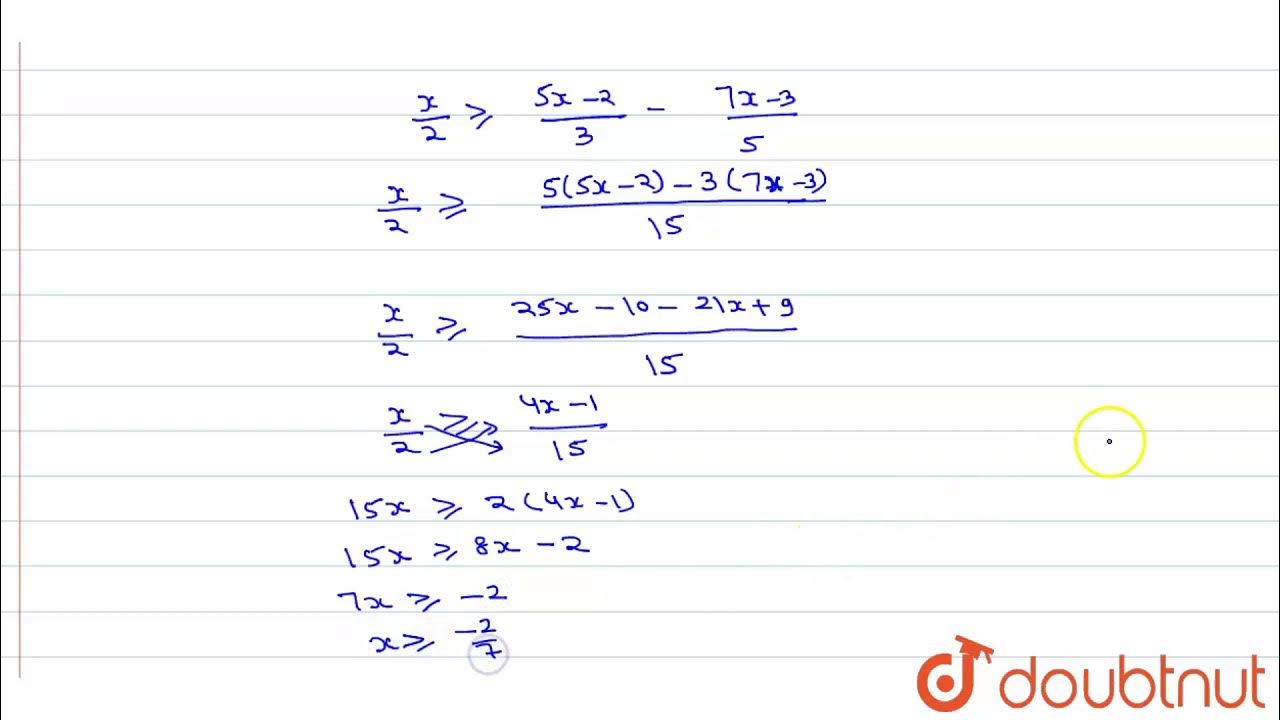 x/2 ⩾ (5x-2)/3 - (7x-3)/5
x/2 ⩾ (5(5x-2)-3(7x-3))/15
x/2 ⩾ (25x-10-21x+9)/15
x/2 ⩾ (4x-1)/15
15x ⩾ 2(4x-1)
15x ⩾ 8x-2
7x ⩾ -2
x ⩾ -2/7
doubtnut